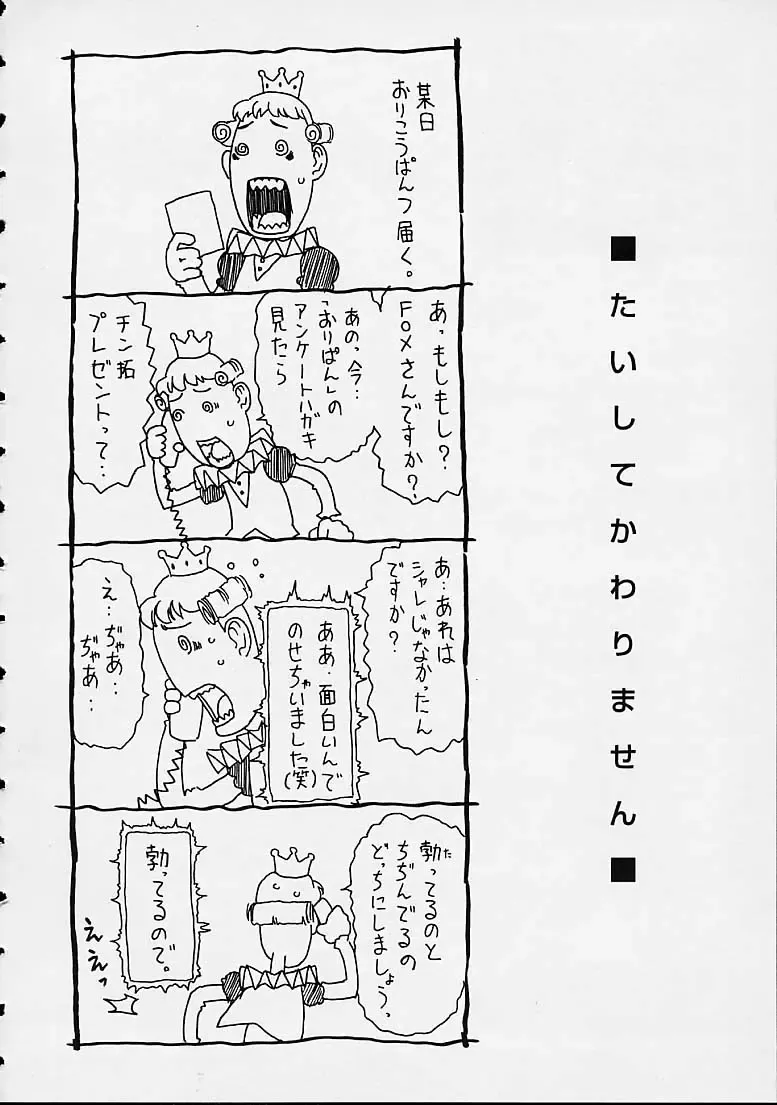 ■たいしてかわりません■
某日
おりこうぱんつ届く。
あっもしもし？
FOXさんですか？
あのっ今…
「おりぱん」の
アンケートハガキ
見たら
チン拓
プレゼントって…
あ…あれは
シャレじゃなかったん
ですか？
ああ．面白いんで
のせちゃいました(笑)
え…ぢゃあ…
ぢゃあ…
勃ってるのと
た
ちぢんでるの
どっちにしましょう。
勃ってるので。
ええっ